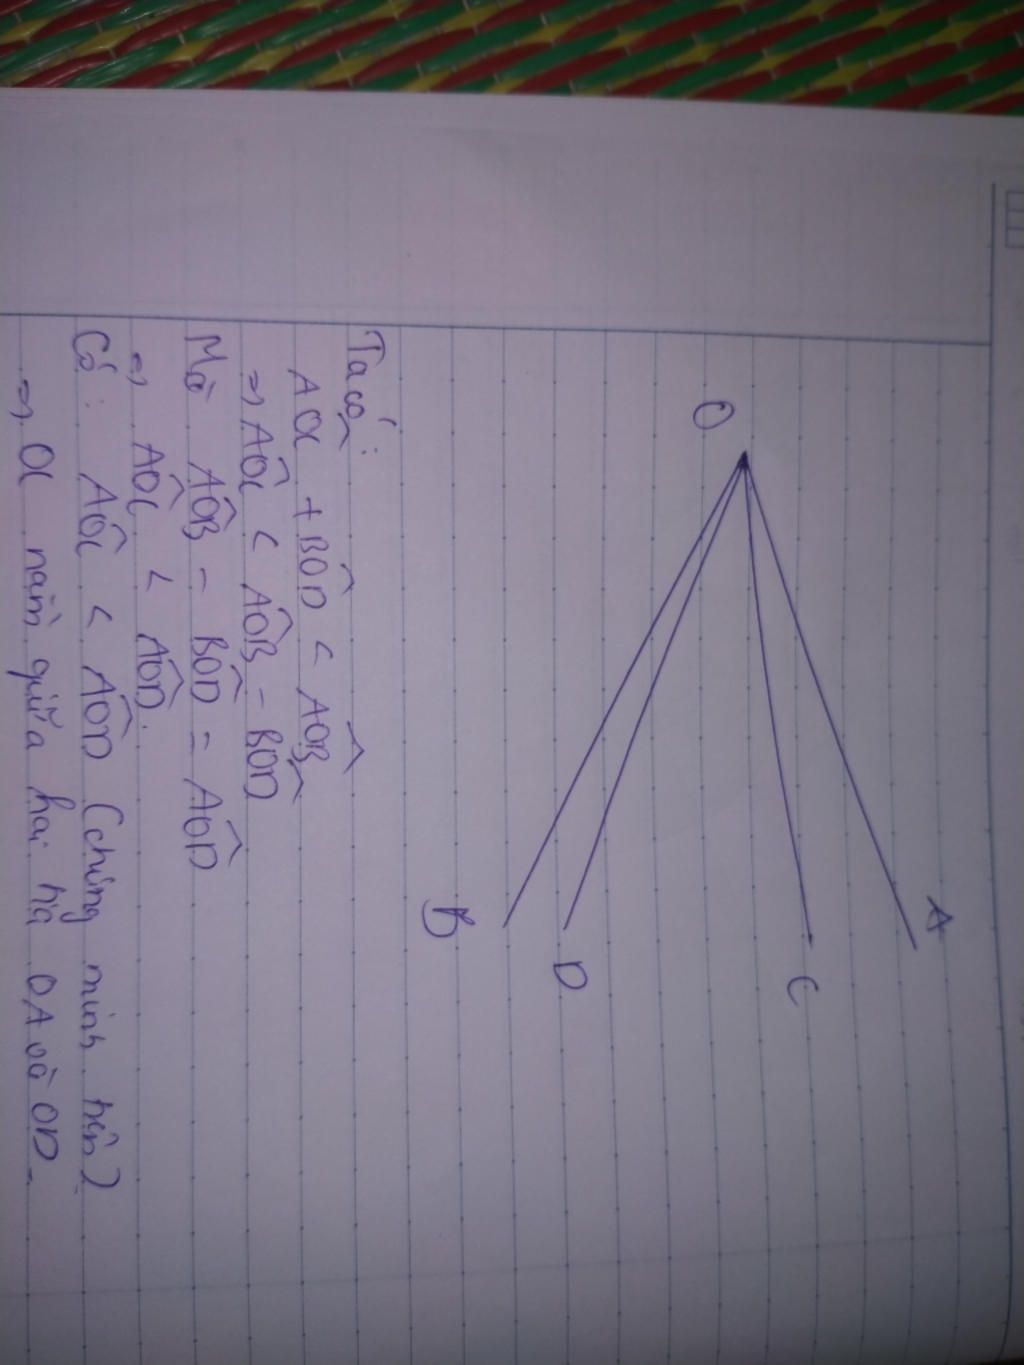 O
A
C
D
B
Ta có:
AOC + BÔD < AÔB
=> AÔC < AÔB - BÔD
Mà AÔB - BÔD = AÔD
=> AÔC < AÔD.
Có: AÔC < AÔD (chứng minh trên)
=> OC nằm giữa hai tia OA và OD.